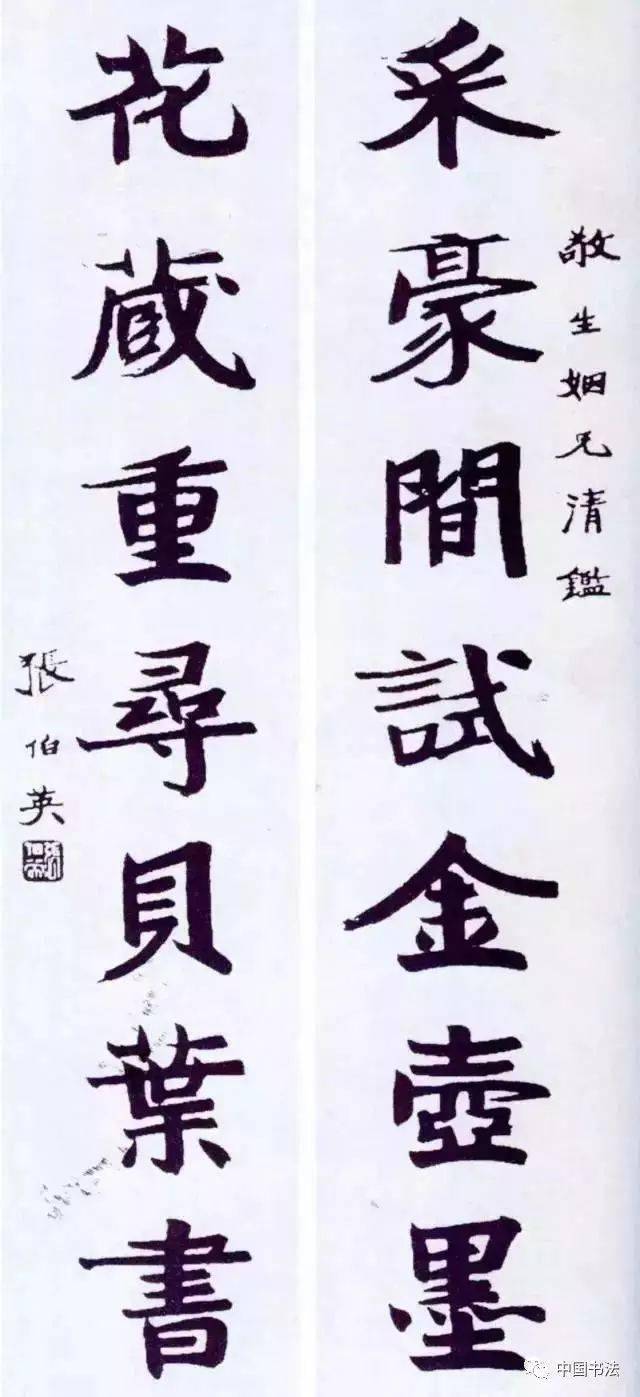 敬生姻兄清鑑
采豪間試金壺墨
花蔵重尋貝葉書
張伯英
中国书法